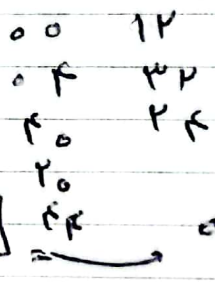 ۰ ۰ ۱۲
۰ ۴ ۳۲
۴ ۰ ۲ ۴
۲ ۰
۴ ۴